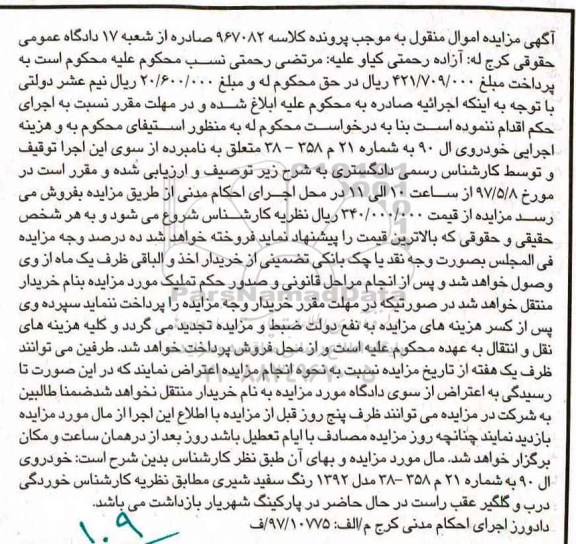 آگهی مزایده اموال منقول به موجب پرونده کلاسه ۹۶۷۰۸۲ صادره از شعبه ۱۷ دادگاه عمومی
حقوقی کرج له: آزاده رحمتی کیاو علیه: مرتضی رحمتی نسب محکوم علیه محکوم است به
پرداخت مبلغ ۴۲۱/۷۰۹/۰۰۰ ریال در حق محکوم له و مبلغ ۲۰/۶۰۰/۰۰۰ ریال نیم عشر دولتی
با توجه به اینکه اجرائیه صادره به محکوم علیه ابلاغ شده و در مهلت مقرر نسبت به اجرای
حکم اقدام ننموده است بنا به درخواست محکوم له به منظور استیفای محکوم به و هزینه
اجرایی خودروی ال ۹۰ به شماره ۲۱ م ۳۵۸ – ۳۸ متعلق به نامبرده از سوی این اجرا توقیف
و توسط کارشناس رسمی دادگستری به شرح زیر توصیف و ارزیابی شده و مقرر است در
مورخ ۹۷/۵/۸ از ساعت ۱۰ الی ۱۱ در محل اجرای احکام مدنی از طریق مزایده بفروش می
رسد مزایده از قیمت ۳۴۰/۰۰۰/۰۰۰ ریال نظریه کارشناس شروع می شود و به هر شخص
حقیقی و حقوقی که بالاترین قیمت را پیشنهاد نماید فروخته خواهد شد ده درصد وجه مزایده
فی المجلس بصورت وجه نقد یا چک بانکی تضمینی از خریدار اخذ و الباقی ظرف یک ماه از وی
وصول خواهد شد و پس از انجام مراحل قانونی و صدور حکم تملیک مورد مزایده بنام خریدار
منتقل خواهد شد در صورتیکه در مهلت مقرر خریدار وجه مزایده را پرداخت ننماید سپرده وی
پس از کسر هزینه های مزایده به نفع دولت ضبط و مزایده تجدید می گردد و کلیه هزینه های
نقل و انتقال به عهده محکوم علیه است و از محل فروش پرداخت خواهد شد. طرفین می توانند
ظرف یک هفته از تاریخ مزایده نسبت به نحوه انجام مزایده اعتراض نمایند که در این صورت تا
رسیدگی به اعتراض از سوی دادگاه مورد مزایده به نام خریدار منتقل نخواهد شد ضمنا طالبین
به شرکت در مزایده می توانند ظرف پنج روز قبل از مزایده با اطلاع این اجرا از مال مورد مزایده
بازدید نمایند چنانچه روز مزایده مصادف با ایام تعطیل باشد روز بعد از درهمان ساعت و مکان
برگزار خواهد شد. مال مورد مزایده و بهای آن طبق نظر کارشناس بدین شرح است: خودروی
ال ۹۰ به شماره ۲۱ م ۳۵۸ -۳۸ مدل ۱۳۹۲ رنگ سفید شیری مطابق نظریه کارشناس خوردگی
درب و گلگیر عقب راست در حال حاضر در پارکینگ شهریار بازداشت می باشد.
دادورز اجرای احکام مدنی کرج م/الف: ۹۷/۱۰۷۷۵/ف
۱۰۹
ParsNamadData